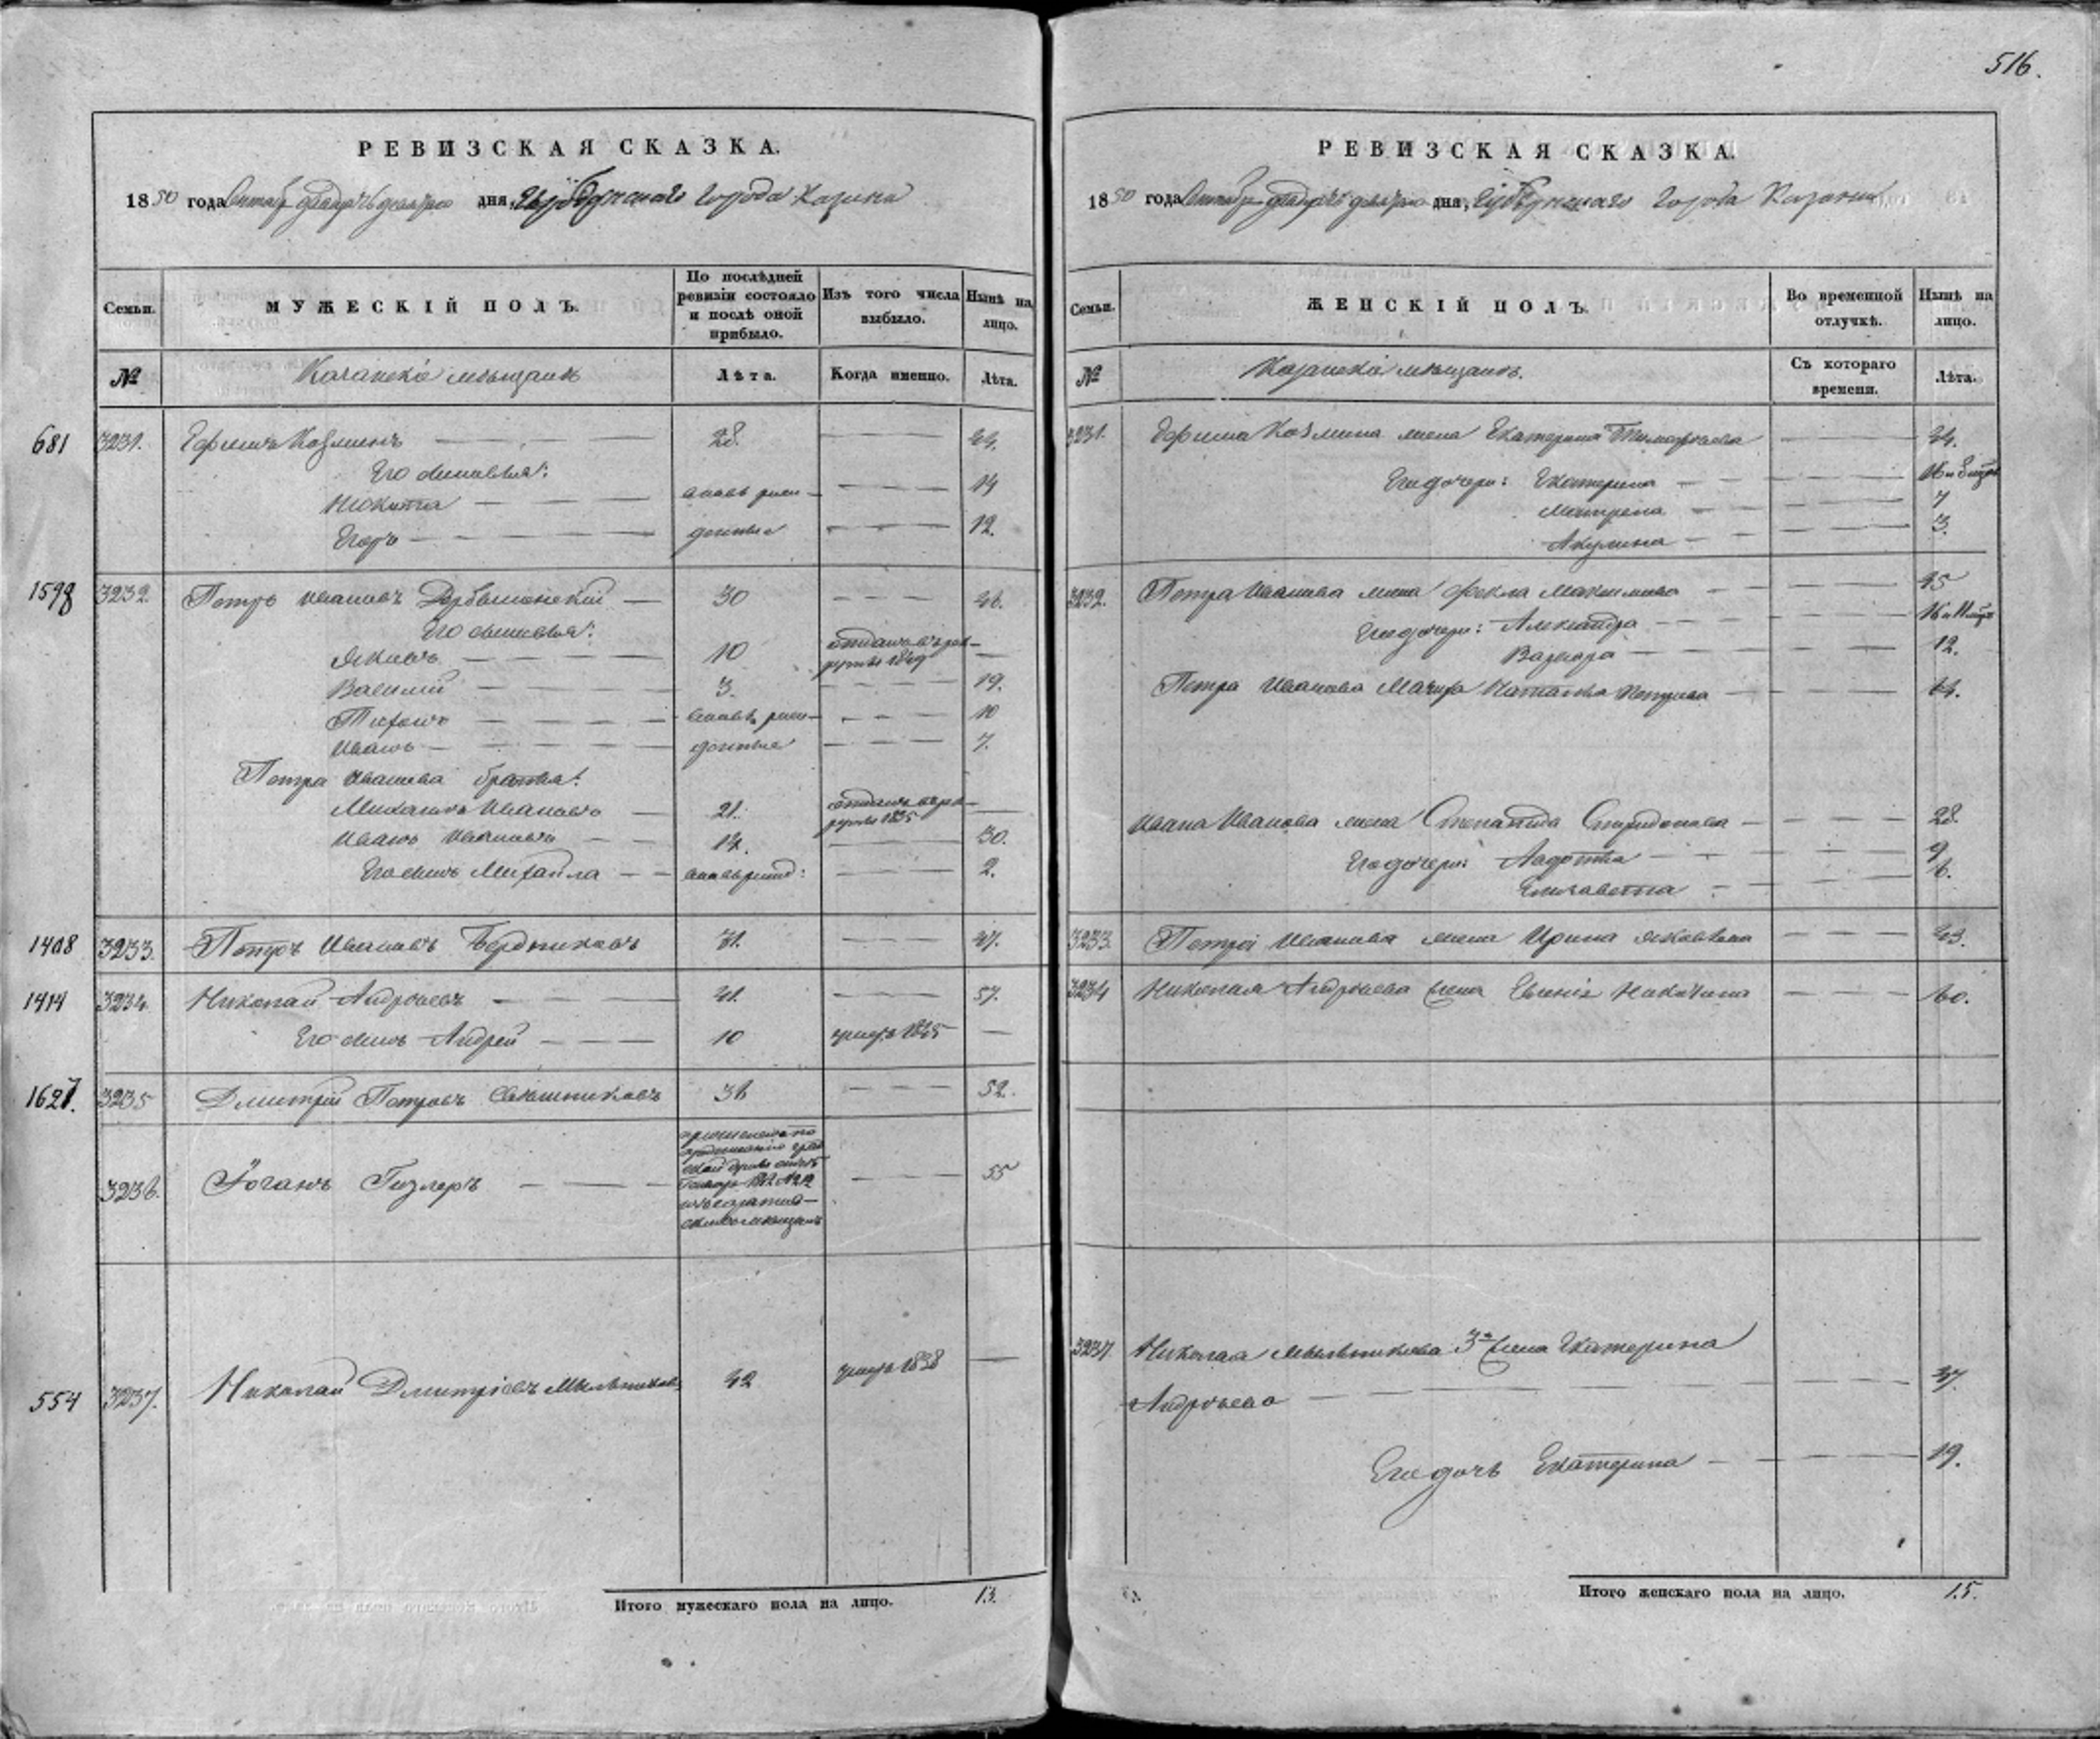 516.
РЕВИЗСКАЯ СКАЗКА.
1850 года дня, Губернскаго города Казани
Семьи.
МУЖЕСКІЙ ПОЛЪ.
По послѣдней ревизіи состояло и послѣ оной прибыло.
Изъ того числа выбыло.
Нынѣ на лицо.
№
Лѣта.
Когда именно.
Лѣта.
681 3231. Ефимъ Козминъ 28. 44.
Его сыновья:
Никита 14
Егоръ 12.
3232. Петръ Ивановъ 30 46.
Его сыновья:
Яковъ 10 отданъ въ рекруты 1849
Василий 3. 19.
10
Иванъ 7.
Петра Иванова братья:
Иванова 21. отданъ въ рекруты 1835
Иванъ Ивановъ 14. 30.
Его сынъ Михайла 2.
1408 3233. Петръ Ивановъ Бердниковъ 31. 47.
1414 3234. Николай Андреевъ 41. 57.
Его сынъ Андрей 10 умеръ 1845
3235 Дмитрий Петровъ 36 52.
3236. Гизлеръ 55
554 3237. Николай Дмитріевъ Мыльниковъ 42 умеръ 1838
Итого мужескаго пола на лицо. 13.
РЕВИЗСКАЯ СКАЗКА.
1850 года дня, Губернскаго города Казани
Семьи.
ЖЕНСКІЙ ПОЛЪ.
Во временной отлучкѣ.
Нынѣ на лицо.
№
Съ котораго времени.
Лѣта.
3231. Ефима Козмина жена Екатерина Тимофеева 44.
Его дочери: Екатерина
Матрена 7
Акулина 3.
3232. Петра Иванова жена Фекла Максимова 45
Его дочери: Александра
Варвара 12.
Петра Иванова Наталья Петрова
Ивана Иванова жена Степанида Спиридонова 28.
Его дочери: Авдотья 9
Елизавета 6.
3233. Петра Иванова жена Ирина Яковлева 43.
3234 Николая Андреева жена Евгенія 60.
3237 Николая Мыльникова 3я жена Екатерина
Андреева 37.
Его дочь Екатерина 19.
Итого женскаго пола на лицо. 15.